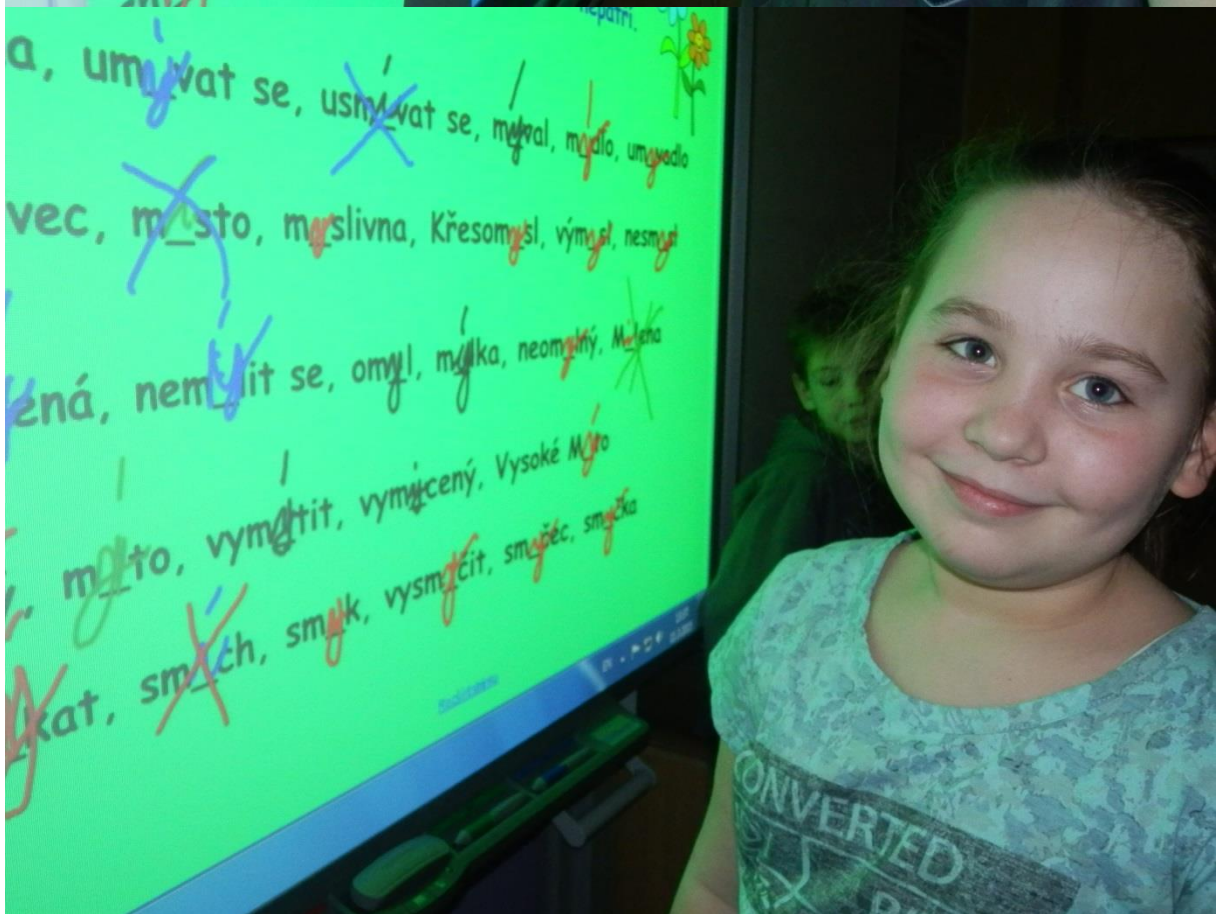 nepatří.
a, umývat se, usmívat se, mýval, mýdlo, umyvadlo
vec, místo, myslivna, Křesomysl, výmysl, nesmysl
ená, nemýlit se, omyl, mýlka, neomylný, Milena
mýto, vymýtit, vymýcený, Vysoké Mýto
kat, smích, smyk, vysmýčit, smyčec, smyčka
CONVERTED